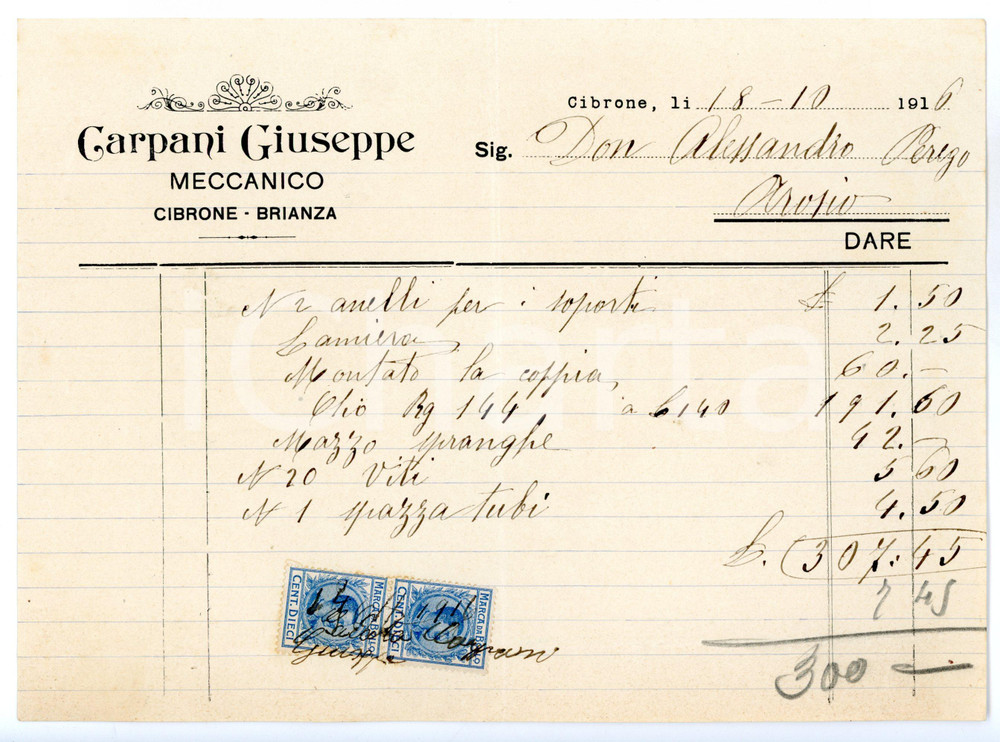 Carpani Giuseppe
MECCANICO
CIBRONE - BRIANZA
Cibrone, li 18 - 10 1916
Sig. Don Alessandro Perego
Arosio
DARE
N 2 anelli per i soporti £ 1.50
Lamiera 2.25
Montato la coppia, 60.-
Olio Kg 144 a £ 1 40 191.60
Mazzo spranghe 42.-
N 20 Viti 5 60
N 1 spazza tubi 4.50
L. 307.45
7 45
300 -
MARCA DA BOLLO
CENT. DIECI
MARCA DA BOLLO
CENT. DIECI
Giuseppe